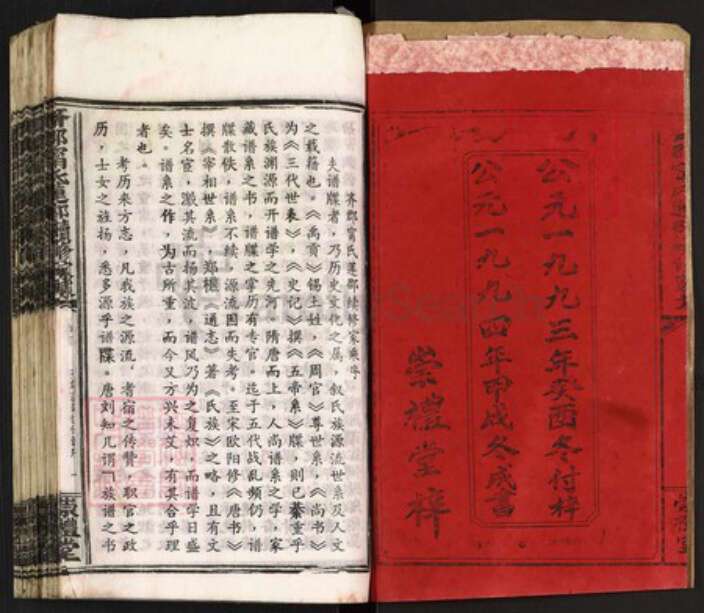 公元一九九三年癸酉冬付梓
公元一九九四年甲戌冬成書
崇禮堂梓
齐郡甯氏逯郡续修家乘序
夫谱牒者，乃历史文化之属，叙民族源流世系及人文
之载籍也，《禹贡》锡土姓，《周官》尊世系，《尚书》
为《三代世表》，《史记》撰《五帝系》牒，则已綦重乎
民族渊源而开谱学之先河。隋唐而上，人尚谱系之学，家
藏谱系之书，谱牒之掌历有专官。迄于五代战乱频仍，谱
牒散佚，谱系不续，源流因而失考。至宋欧阳修《唐书》
撰《宰相世系》，郑樵《通志》著《氏族》之略，且有文
士名宦，溉其流而扬其波，谱风乃为之复炽，而谱学日盛
矣。谱系之作，为古所重，而今又方兴未艾，有其合乎理
者也。
考历来方志，凡我族之源流，耆宿之传贊，职官之政
历，士女之旌扬，悉多源乎谱牒。唐刘知几谓「族谱之书
崇禮堂